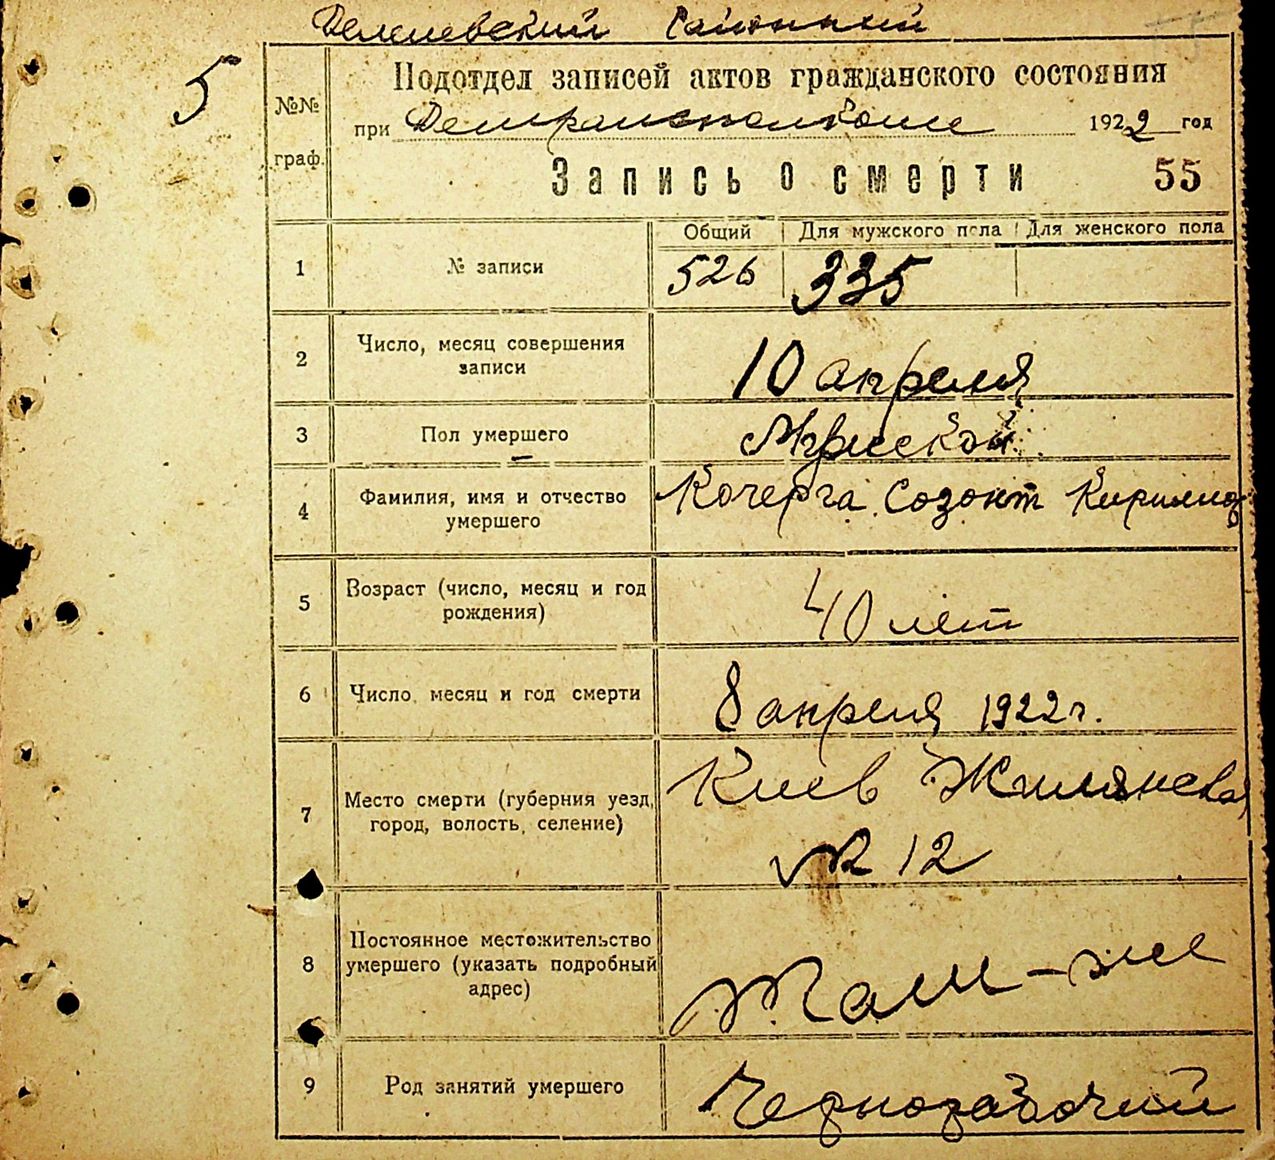 Демиевский Районный
5
Подотдел записей актов гражданского состояния
№№ граф.
при Демрайисполкоме 1922 год
Запись о смерти 55
Общий Для мужского пола Для женского пола
1 № записи 526 335
2 Число, месяц совершения записи 10 апреля
3 Пол умершего Мужской
4 Фамилия, имя и отчество умершего Кочерга Созонт Кирилов
5 Возраст (число, месяц и год рождения) 40 лет
6 Число, месяц и год смерти 8 апреля 1922 г.
7 Место смерти (губерния уезд, город, волость, селение) Киев Жилянская
№ 12
8 Постоянное местожительство умершего (указать подробный адрес) Там-же
9 Род занятий умершего Чернорабочий